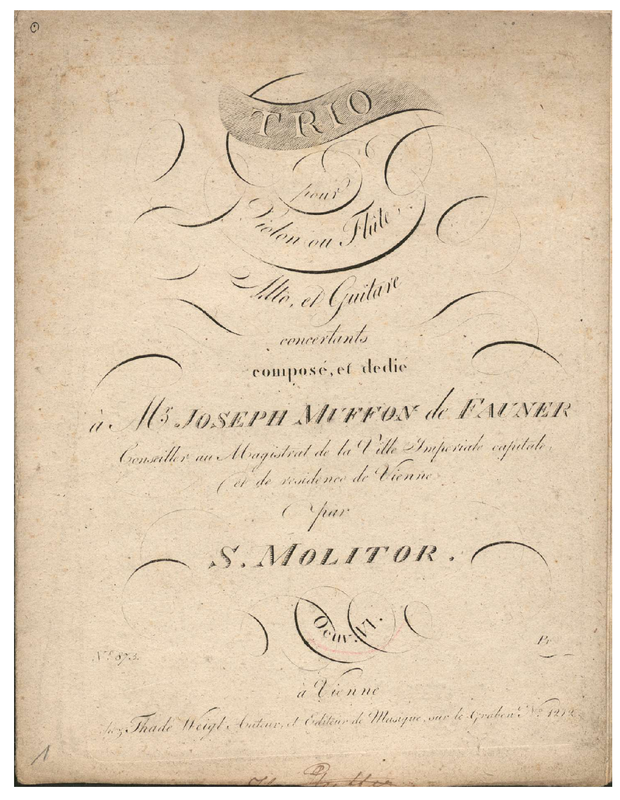 TRIO
pour
Violon ou Flûte,
Alto, et Guitare
concertants
composé, et dedié
à Mr. JOSEPH MUFFON de FAUNER
Conseiller au Magistrat de la Ville Imperiale capitale,
et de residence de Vienne
par
S. MOLITOR.
Oeuv. VI.
Pr
à Vienne
chez Thade Weigl, Auteur, et Editeur de Musique, sur le Graben No. 1212
1